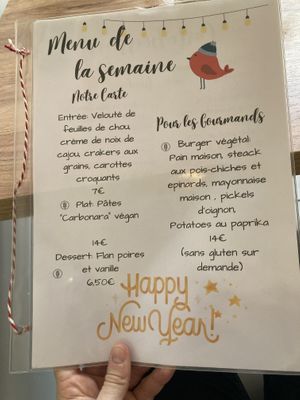 Menu de
la semaine
Notre Carte
Entrée: Velouté de
feuilles de chou,
crème de noix de
cajou, crakers aux
grains, carottes
croquants
7€
Plat: Pâtes
"Carbonara" végan
14€
Dessert: Flan poires
et vanille
6,50€
Pour les Gourmands
Burger végétal:
Pain maison, steack
aux pois-chiches et
epinards, mayonnaise
maison , pickels
d'oignon,
Potatoes au paprika
14€
(sans gluten sur
demande)
Happy
New Year!